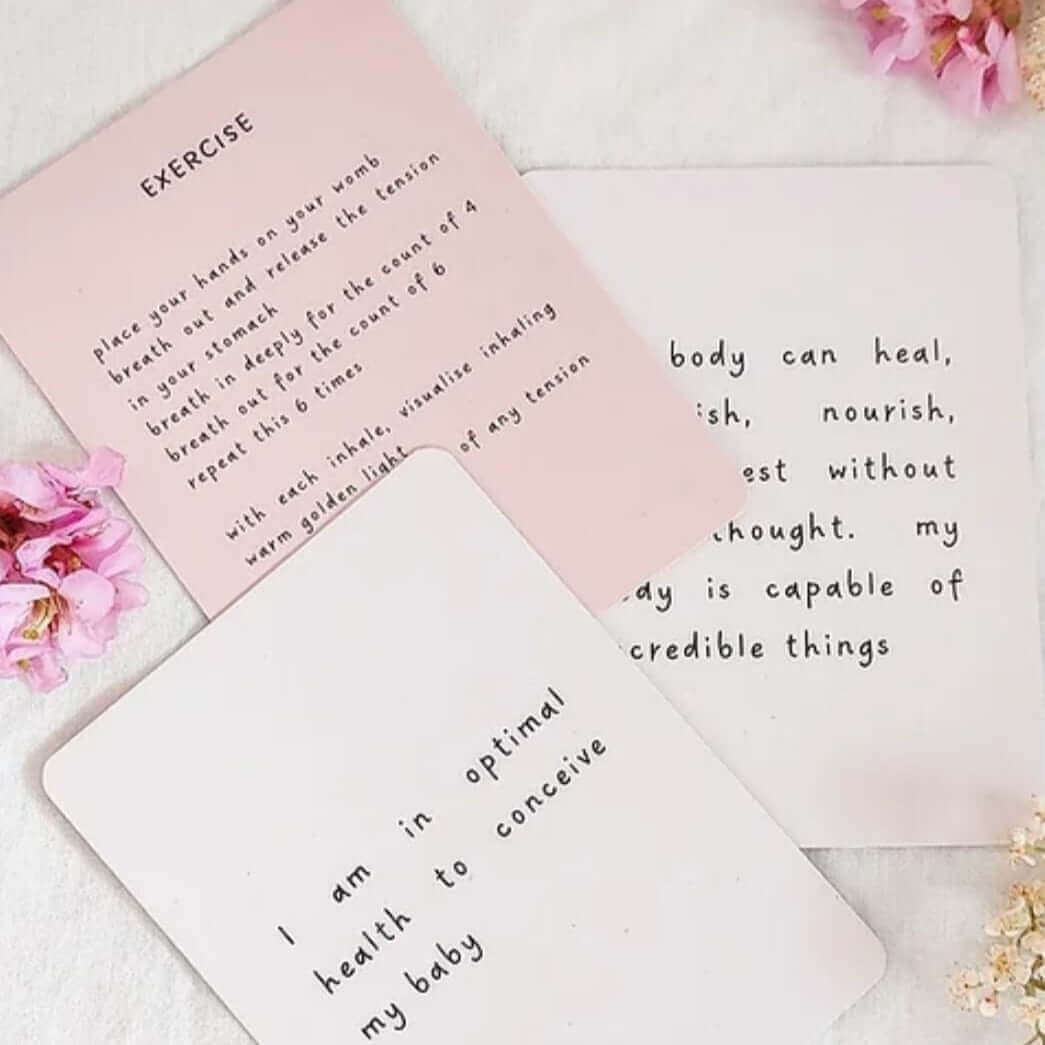 EXERCISE
place your hands on your womb
breath out and release the tension
in your stomach
breath in deeply for the count of 4
breath out for the count of 6
repeat this 6 times
with each inhale, visualise inhaling
warm golden light of any tension
body can heal,
nourish,
without
thought. my
is capable of
things
I am in optimal
health to conceive
my baby